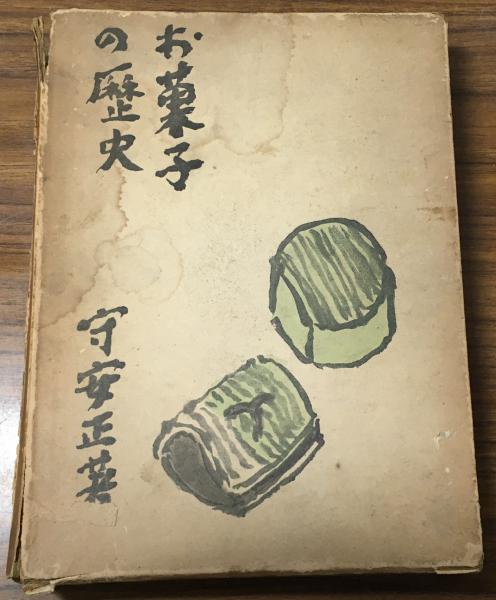 お菓子
の歴史
守安正著